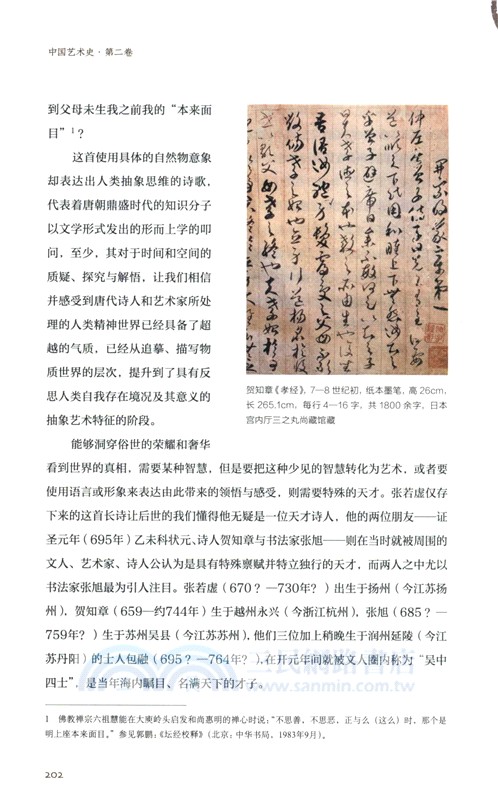 中国艺术史·第二卷
到父母未生我之前我的“本来面
目”1？
这首使用具体的自然物意象
却表达出人类抽象思维的诗歌，
代表着唐朝鼎盛时代的知识分子
以文学形式发出的形而上学的叩
问，至少，其对于时间和空间的
质疑、探究与解悟，让我们相信
并感受到唐代诗人和艺术家所处
理的人类精神世界已经具备了超
越的气质，已经从追摹、描写物
质世界的层次，提升到了具有反
思人类自我存在境况及其意义的
抽象艺术特征的阶段。
贺知章《孝经》，7—8世纪初，纸本墨笔，高26cm，
长265.1cm，每行4—16字，共1800余字，日本
宫内厅三之丸尚藏馆藏
能够洞穿俗世的荣耀和奢华
看到世界的真相，需要某种智慧，但是要把这种少见的智慧转化为艺术，或者要
使用语言或形象来表达由此带来的领悟与感受，则需要特殊的天才。张若虚仅存
下来的这首长诗让后世的我们懂得他无疑是一位天才诗人，他的两位朋友——证
圣元年（695年）乙未科状元、诗人贺知章与书法家张旭——则在当时就被周围的
文人、艺术家、诗人公认为是具有特殊禀赋并特立独行的天才，而两人之中尤以
书法家张旭最为引人注目。张若虚（670？—730年？）出生于扬州（今江苏扬
州），贺知章（659—约744年）生于越州永兴（今浙江杭州），张旭（685？—
759年？）生于苏州吴县（今江苏苏州），他们三位加上稍晚生于润州延陵（今江
苏丹阳）的士人包融（695？—764年？），在开元年间就被文人圈内称为“吴中
四士”，是当年海内瞩目、名满天下的才子。
三民網路書店
www.sanmin.com.tw
1 佛教禅宗六祖慧能在大庾岭头启发和尚惠明的禅心时说：“不思善，不思恶，正与么（这么）时，那个是
明上座本来面目。”参见郭鹏：《坛经校释》（北京：中华书局，1983年9月）。
202